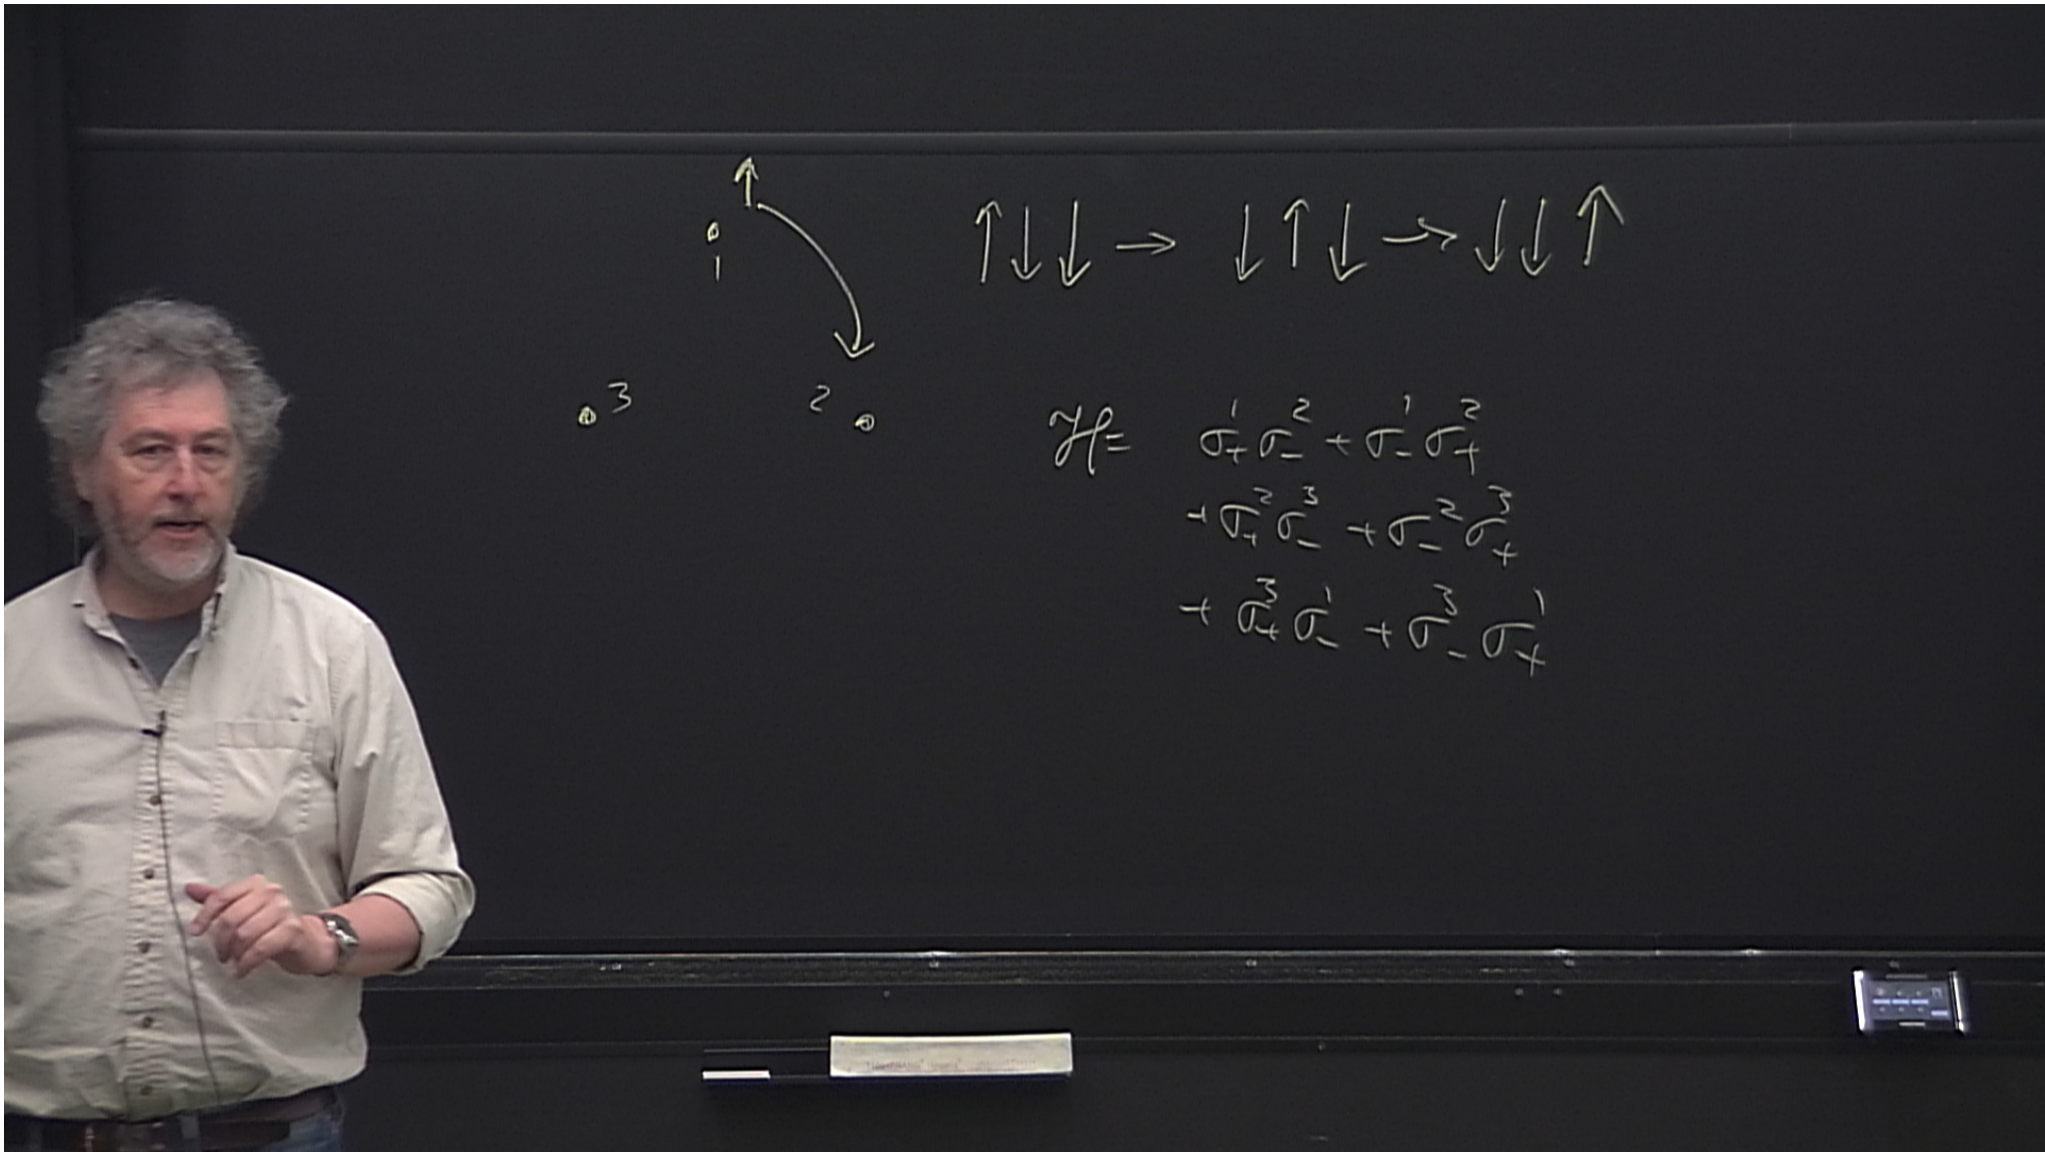 ↑↓↓ → ↓↑↓ → ↓↓↑
1
3 2
ℋ = σ₊¹ σ₋² + σ₋¹ σ₊²
+ σ₊² σ₋³ + σ₋² σ₊³
+ σ₊³ σ₋¹ + σ₋³ σ₊¹